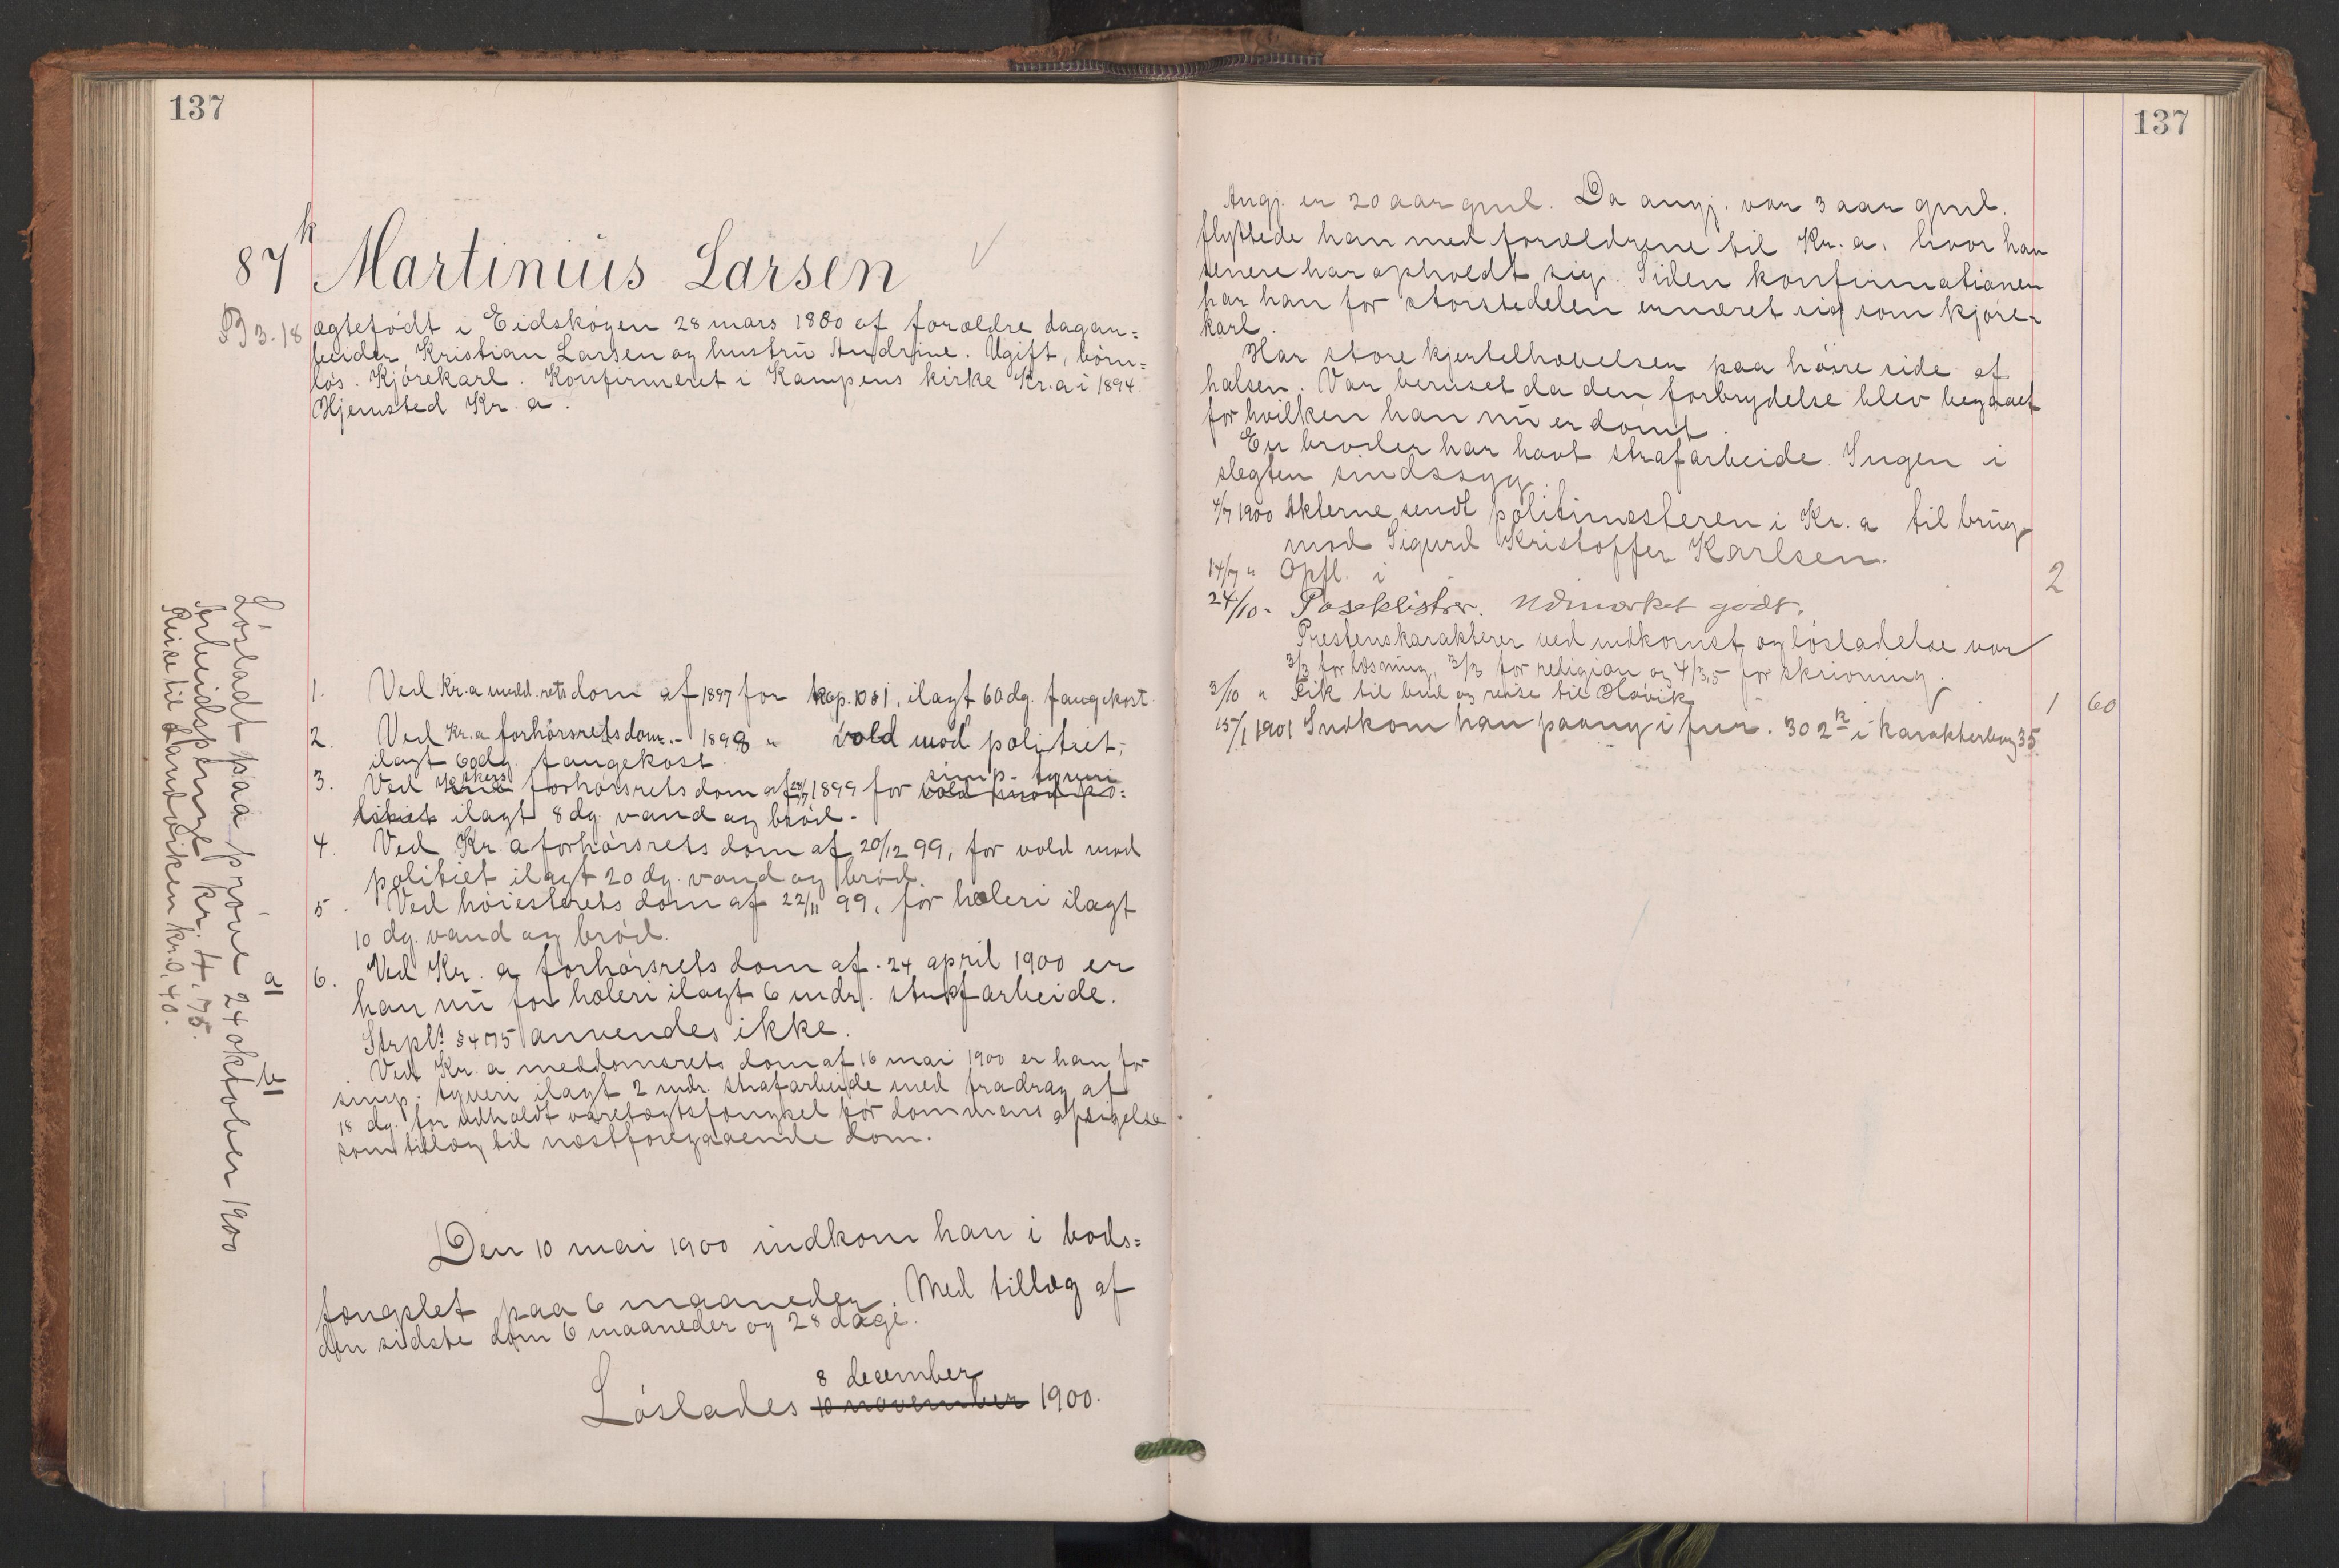 137
87k Martinius Larsen
B 3.18 ægtefödt i Eidskogen 28 mars 1880 af forældre dagar=
beider Kristian Larsen og hustru Andrine. Ugift, börn=
lös. Kjörekarl. Konfirmeret i Kampens kirke Kr.a i 1894
Hjemsted Kr. a.
1. Ved Kr.a medd.retsdom af 1897 for kap. 10 § 1, ilagt 60 dg. fangekost.
2. Ved Kr.a forhörsretsdom - 1898 " vold mod politiet,
ilagt 60 dg. fangekost.
3. Ved Akers forhörsrets dom af 1899 for simp. tyveri
ilagt 8 dg. vand og bröd.
4. Ved Kr. a forhörsrets dom af 20/12 99, for vold mod
politiet ilagt 20 dg. vand og bröd.
5. Ved höiesterets dom af 22/11 99, for hæleri ilagt
10 dg. vand og bröd.
6. Ved Kr. a forhörsrets dom af 24 april 1900 er
han nu for hæleri ilagt 6 mdr. strafarbeide.
Strpl. § 475 anvendes ikke.
Ved Kr. a meddomsrets dom af 16 mai 1900 er han for
simp. tyveri ilagt 2 mdr. strafarbeide med fradrag af
18 dg. for udholdt varetægtsfængsel för dommens afsigelse
som tillæg til næstforegaaende dom.
Den 10 mai 1900 indkom han i bods=
fængslet paa 6 maaneder. Med tillæg af
den sidste dom 6 maaneder og 28 dage.
8 december
Löslades 10 november 1900.
Lösladt paa pröve 24 oktober 1900
Arbeidspenge kr. 4,75.
Reise til Sandviken kr. 0,40.
137
Angj. er 20 aar gml. Da angj. var 3 aar gml.
flyttede han med forældrene til Kr. a. hvor han
senere har opholdt sig. Siden konfirmationen
har han for störstedelen ernæret sig som kjöre-
karl.
Har store kjertelhævelser paa höire side af
halsen. Var beruset da den forbrydelse blev begaaet
for hvilken han nu er dömt.
En broder har havt strafarbeide. Ingen i
slegten sindssyg.
4/7 1900 Akterne sendt politimesteren i Kr. a til brug
mod Sigurd Kristoffer Karlsen.
14/7 " Opfl. i 2
24/10 - Poseklistrer. Udmærket godt.
Prestens karakterer ved indkomst og lösladelse var
3/3 for læsning, 3/3 for religion og 4/3,5 for skrivning.
3/10 " Fik til bud og reise til Hövik 1 60
15/1 1901 Indkom han paany i fnr. 302k i karakterbog 35